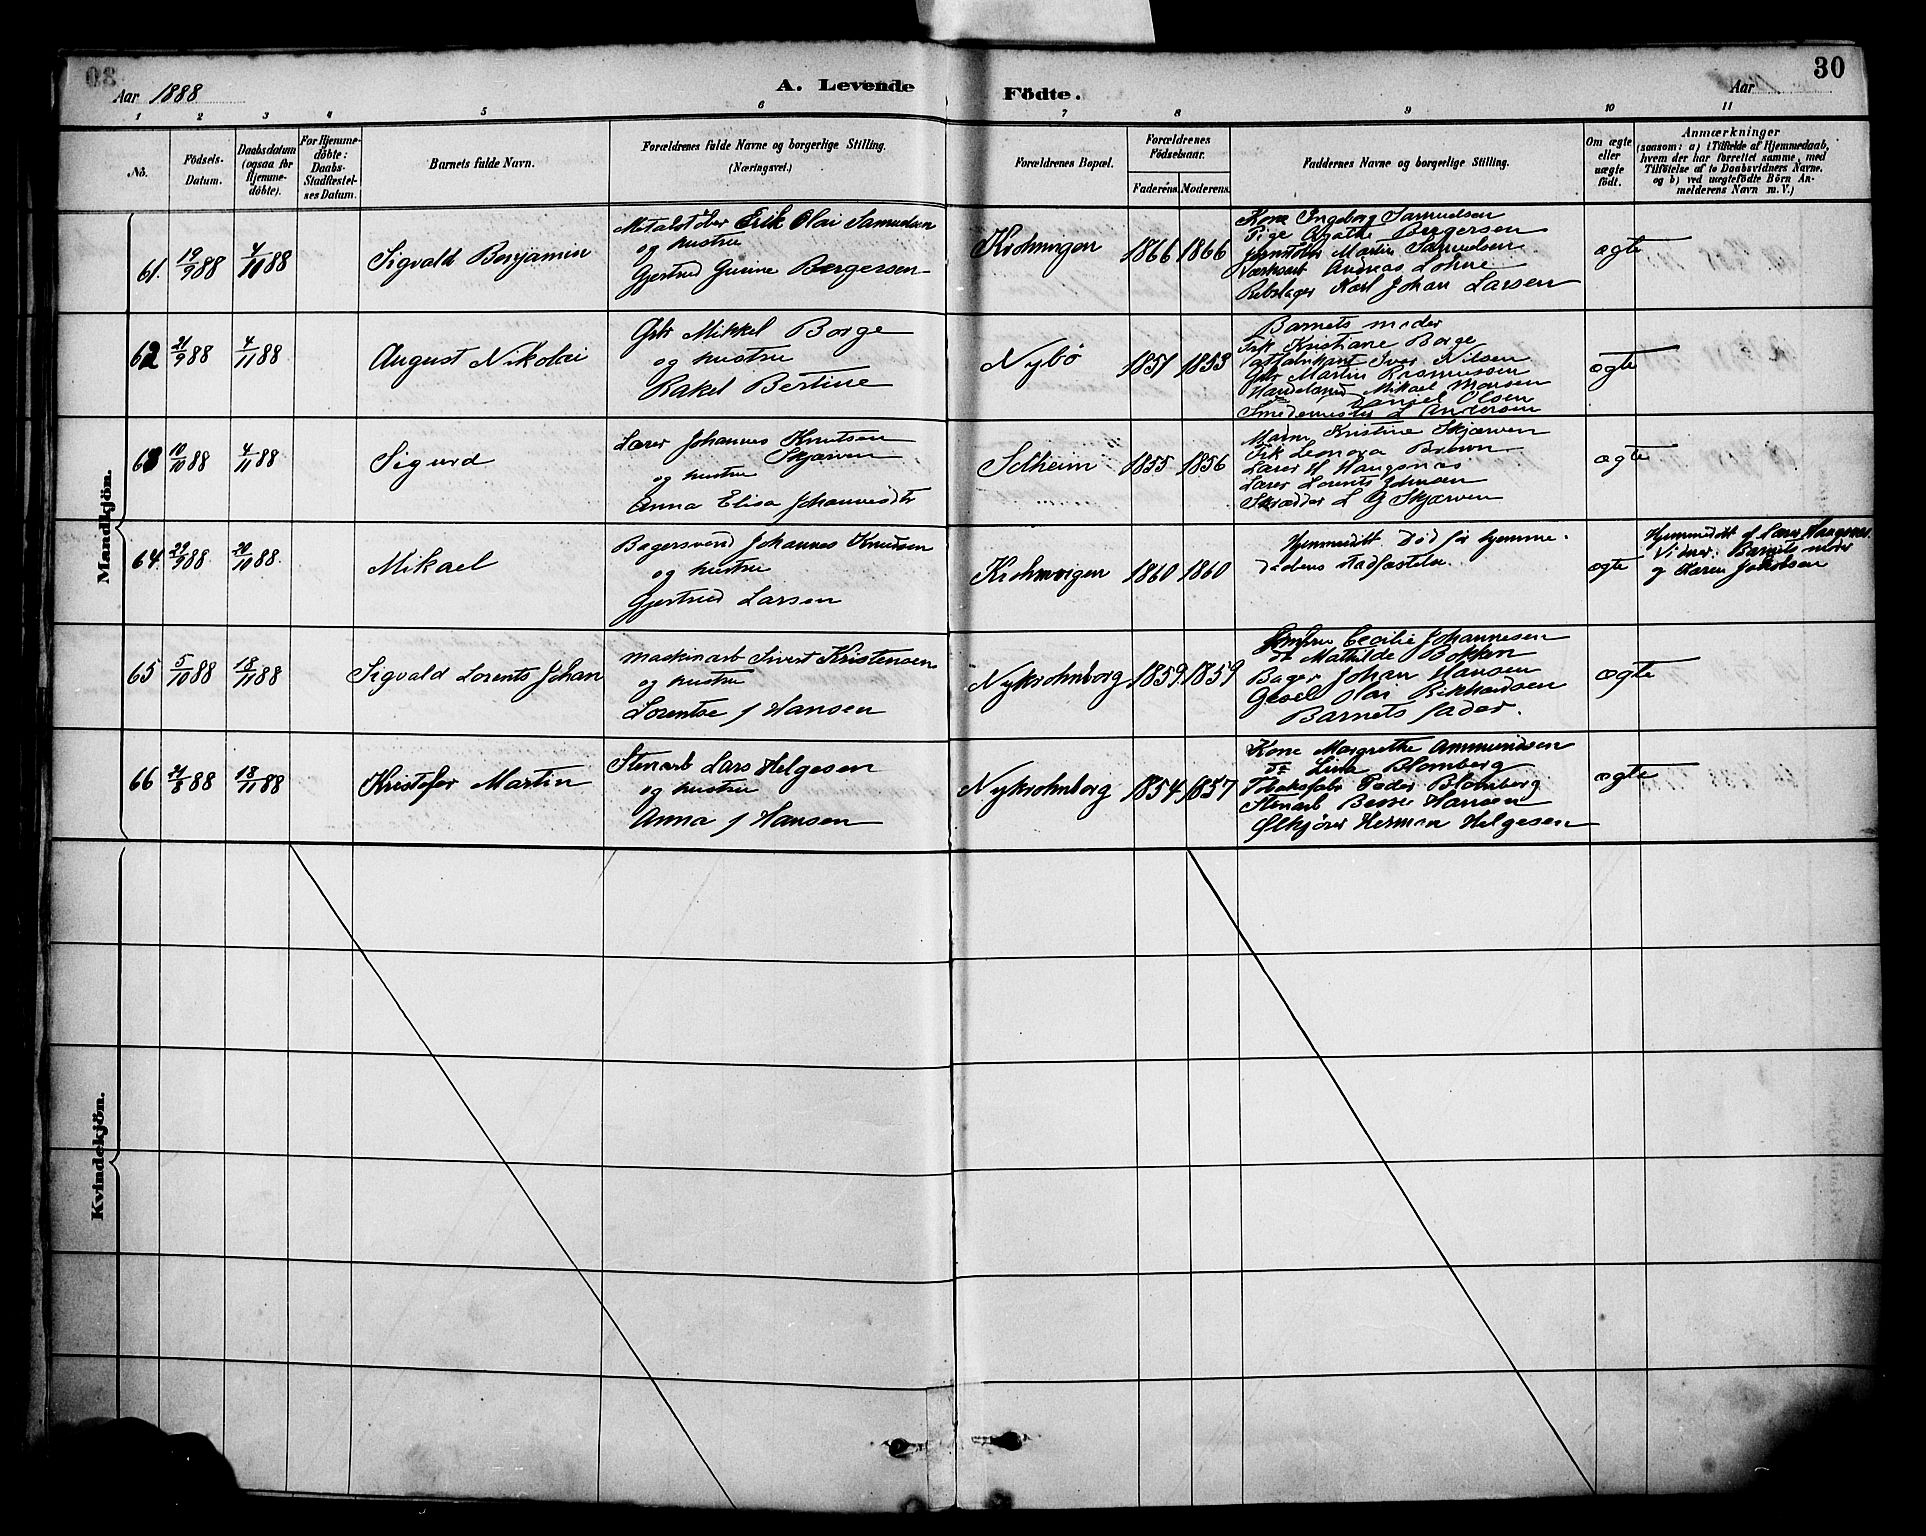 30
Aar 1888
A. Levende Födte.
Aar
1 2 3 4 5 6 7 8 9 10 11
No.
Födsels-Datum.
Daabsdatum (ogsaa för Hjemmedöbte).
For Hjemmedöbte: Daabs-Stadfæstelses Datum.
Barnets fulde Navn.
Forældrenes fulde Navne og borgerlige Stilling.
(Næringsvei.)
Forældrenes Bopæl.
Forældrenes Födselsaar.
Faderens. Moderens.
Faddernes Navne og borgerlige Stilling.
Om ægte eller uægte födt.
Anmærkninger
(saasom: a) i Tilfælde af Hjemmedaab, hvem der har forrettet samme, med Tilföielse af to Daabsvidners Navne, og b) ved uægtefödte Börn Anmelderens Navn m. V.)
Mandkjön.
61. 19/9 88 4/11 88
Sigvald Benjamin
Metalstöber Erik Olai Samuelsen
og hustru
Gjertrud Gurine Bergersen
Krohnvigen 1866 1866
Kone Ingeborg Samuelsen
Pige Agathe Bergersen
Jernstöber Martin Samuelsen
Værksarb Andreas Lohne
Rebslager Karl Johan Larsen
ægte
62 21/9 88 4/11 88
August Nikolai
Gbr Mikkel Borge
og hustru
Rakel Bertine
Nybö 1851 1853
Barnets moder
Frk Kristiane Borge
Vatfabrikant Iver Nilsen
Gbr Martin Rasmussen
Handelsmd Mikael Monsen
Daniel Olsen
Smedemester L Andersen
ægte
63 10/10 88 4/11 88
Sigurd
Lærer Johannes Knutsen
Skjerven
og hustru
Anna Elisa Johannesdtr
Solheim 1855 1856
Madm Kristine Skjærven
Frk Leonora Brown
Lærer H Haugsnæs
Lærer Lorents Johnsen
Skrædder L G Skjærven
ægte
64. 29/9 88 20/10 88.
Mikael
Bagersvend Johannes Knudsen
og hustru
Gjertrud Larsen
Krohnvigen 1860 1860
Hjemmedöbt Död för hjemme-
daabens stadfæstelse
ægte
Hjemmedöbt af Lærer Haugsnæs.
Vidner: Barnets moder
og Karen Jakobsen
65 5/10 88 18/11 88
Sigvald Lorents Johan
Maskinarb Sivert Kristensen
og hustru
Lorentse J Hansen
Nykrohnborg 1859 1859
Cecilie Johannesen
do Mathilde Bokken
Bager Johan Hansen
Olai Rikhardsen
Barnets fader.
ægte
66 21/8 88 18/11 88
Kristofer Martin
Stenarb Lars Helgesen
og hustru
Anna J Hansen
Nykrohnborg 1854 1857
Kone Margrethe Ammundsen
do Lina Blomberg
Tobaksfabr Peder Blomberg
Stenarb Hansen
Ølkjører Herman Helgesen
ægte
Kvindekjön.